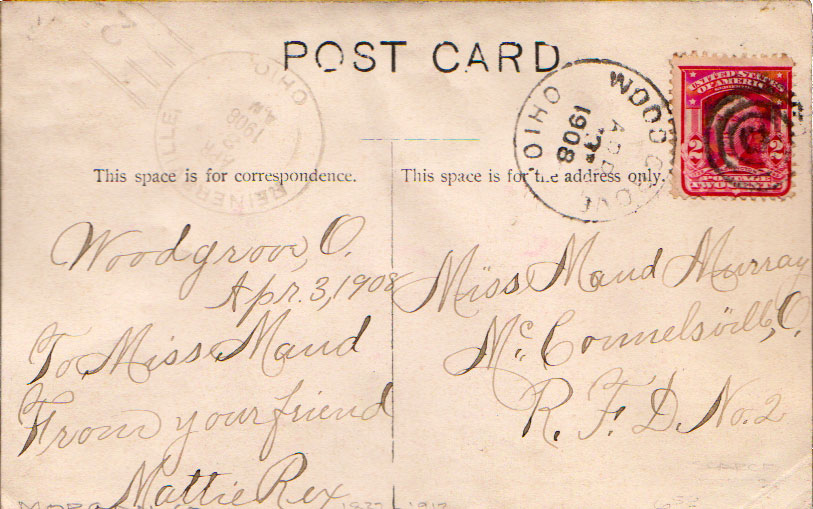 POST CARD
OHIO
APR
1908
A.M
REINERSVILLE
WOOD GROVE
APR
3
1908
OHIO
UNITED STATES
OF AMERICA
2 2
POSTAGE
TWO CENTS
This space is for correspondence.
This space is for the address only.
Woodgrove, O.
Apr. 3, 1908
To Miss Maud
From your friend
Mattie Rex
Miss Maud Murray
Mc Connelsville, O.
R. F. D. No. 2